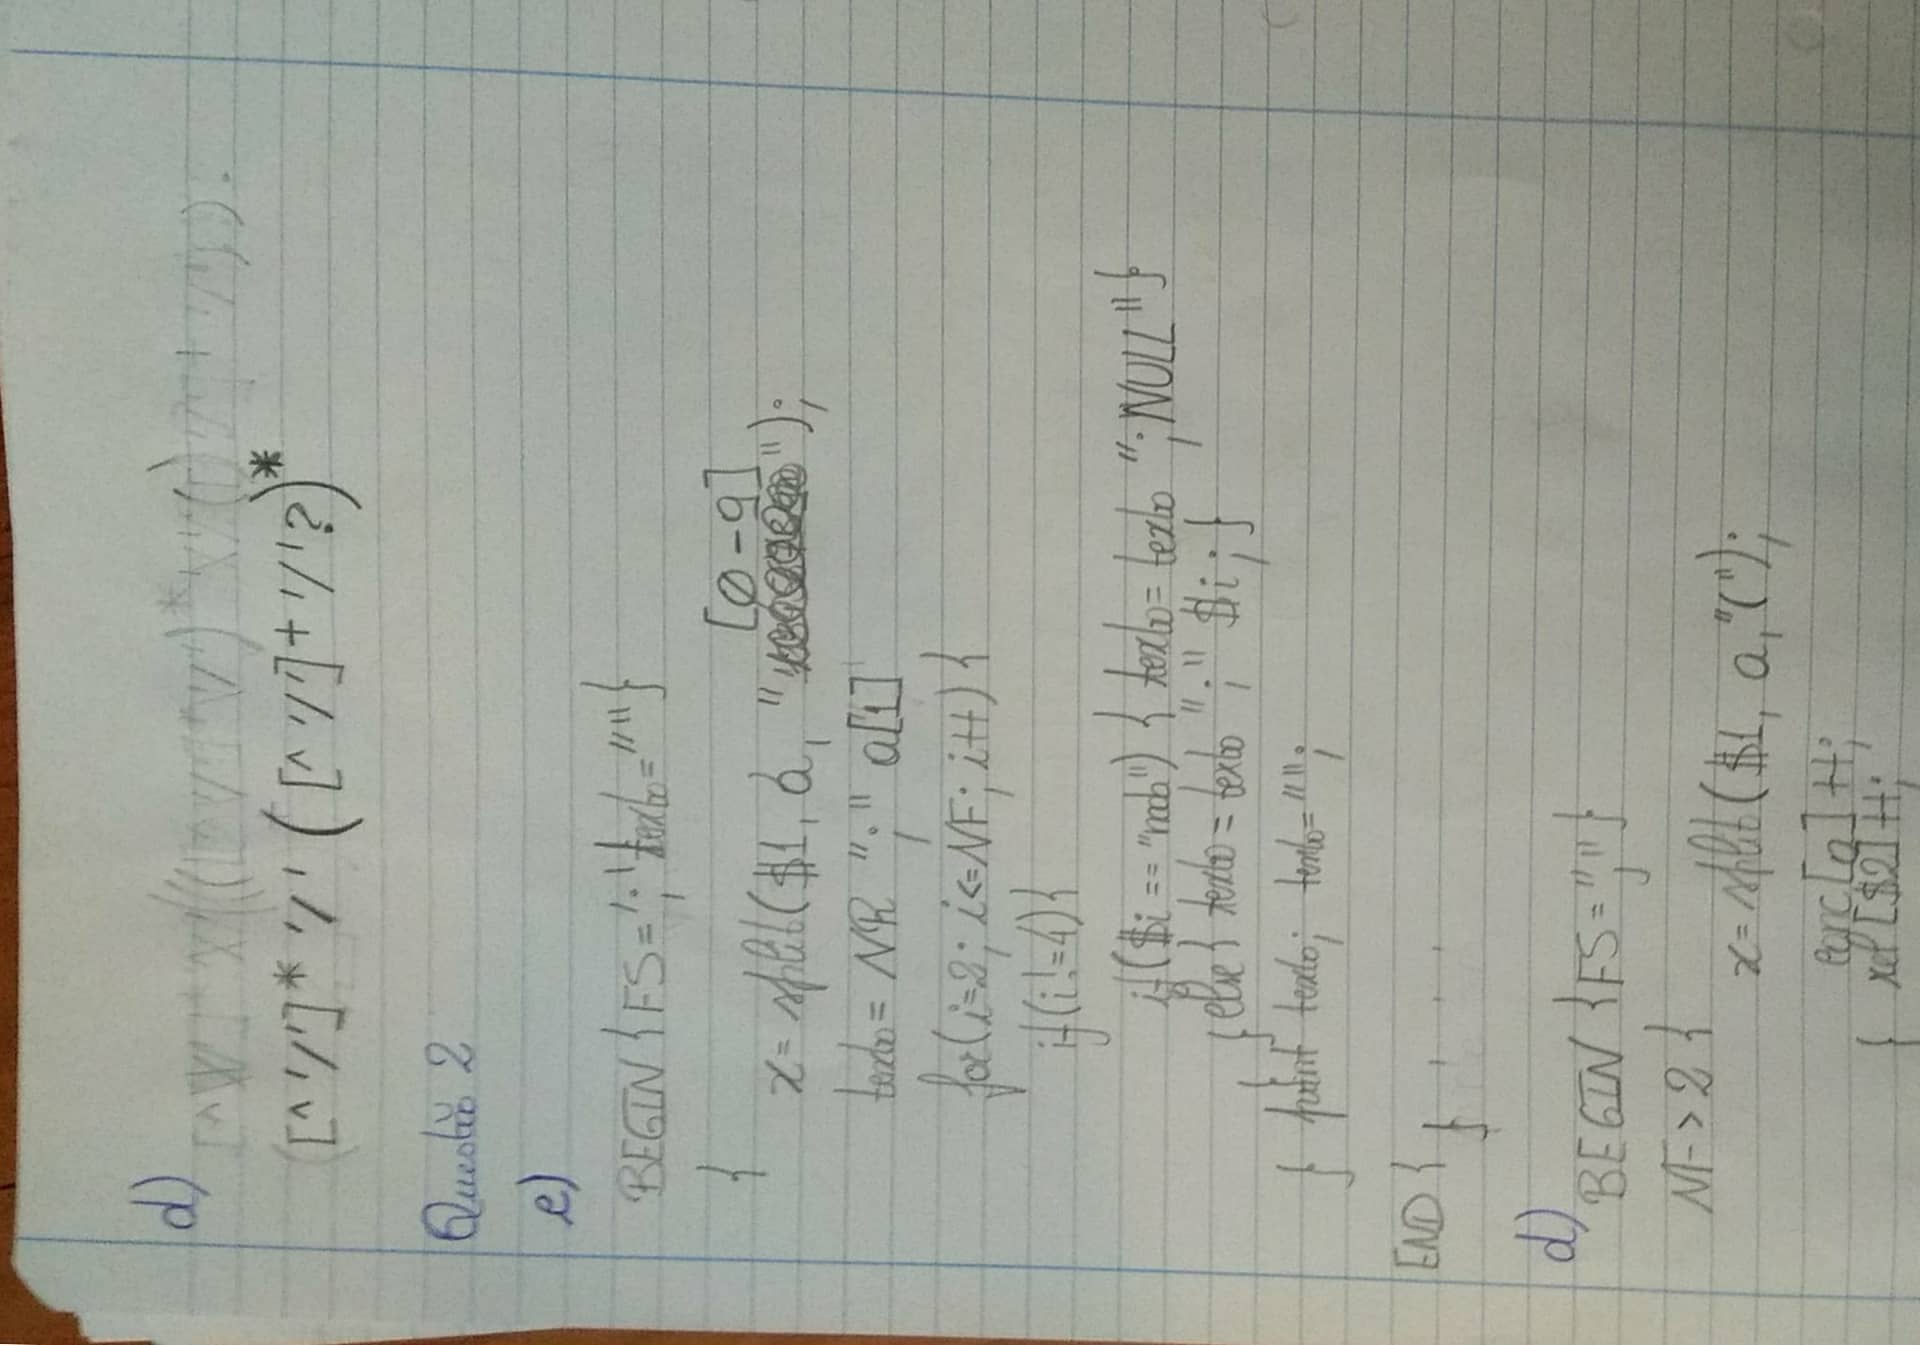 d)
[^'/']* '/' ([^'/']+ '/'?)*
Questão 2
e)
BEGIN {FS=';' texto=""}
{
[0-9]
x= split($1, a, " ");
texto= NR ";" a[1]
for(i=2; i<=NF; i++) {
if(i!=4){
if($i == "nada") { texto= texto ";NULL"}
else{ texto = texto ";" $i; }
} }
} print texto; texto="";
END { }
d)
BEGIN {FS=";"}
NF>2 {
x= split($1, a, "(");
conc[a]++;
{ ref[$2]++;